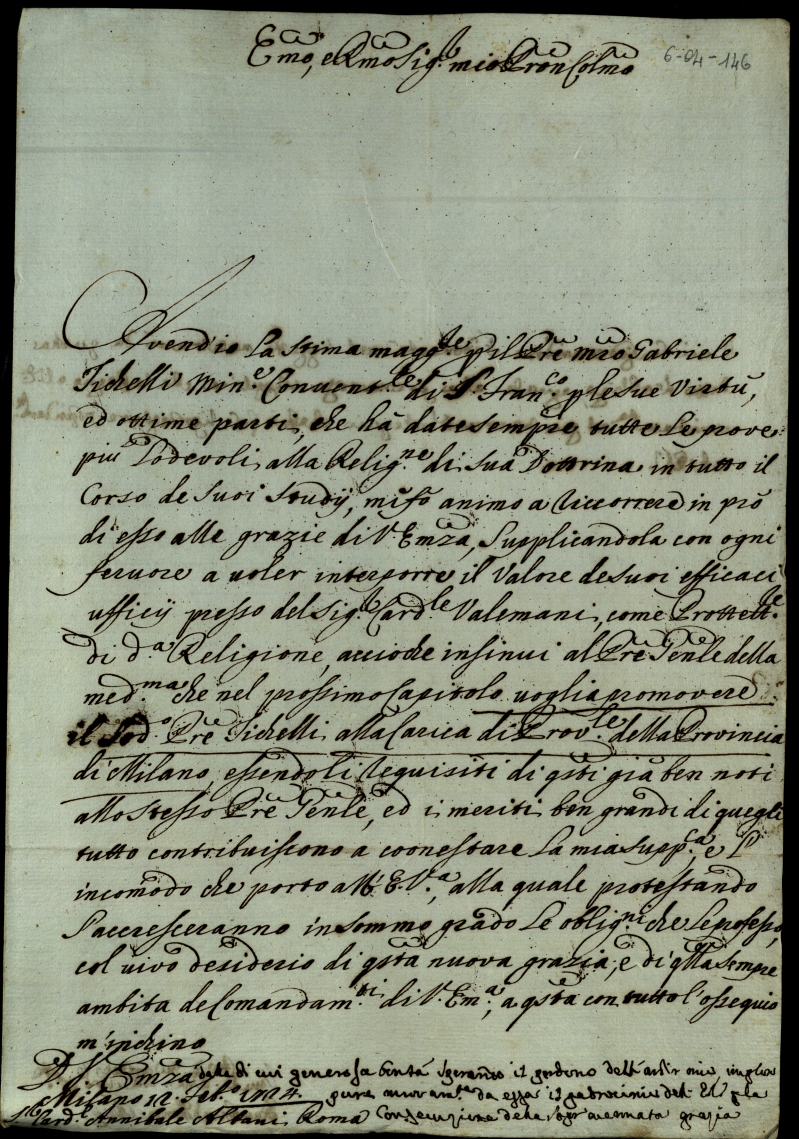 Emo, e Rmo Sig.r mio Pron Colmo
6-04-146
Avendio la stima magg.re p il Pre mro Gabriele
Fichelli Min.e Convent.le di S. Fran.co p le sue Virtù,
ed ottime parti, che hà date sempre tutte le prove
più lodevoli alla Relig.ne di sua Dottrina in tutto il
Corso de suoi studij, mi fò animo a riccorrere in prò
di esso alle grazie di V. Emza, supplicandola con ogni
fervore a voler interporre il valore de suoi efficaci
ufficij presso del Sig.r Card.le Valemani, come Protett.re
di d.a Religione, acciòche insinui al Pre Genle della
med.ma che nel prossimo Capitolo voglia promovere
il sod.o Pre Fichelli alla Carica di Prov.le della Provincia
di Milano, essendo li requisiti di qsti già ben noti
allo stesso Pre Genle, ed i meriti ben grandi di quegli
tutto contribuiscono a coonestare la mia supp.ca e l'
incomodo che porto all' E. V.a, alla quale protestando
s'accresceranno in sommo grado le oblig.ni che le professo,
col vivo desiderio di qsta nuova grazia, e di qlla sempre
ambita de Comandam.ti di V. Em.a, a qsta con tutto l'ossequio
m'inchino
D. V. Emza dalla di cui generosa bontà sperando il perdono dell' ardir mio, imploro
Milano 12 Feb.o 1724. pure da essa il patrocinio
Card.l Annibale Albani Roma Consecuzione della sopr'accennata grazia